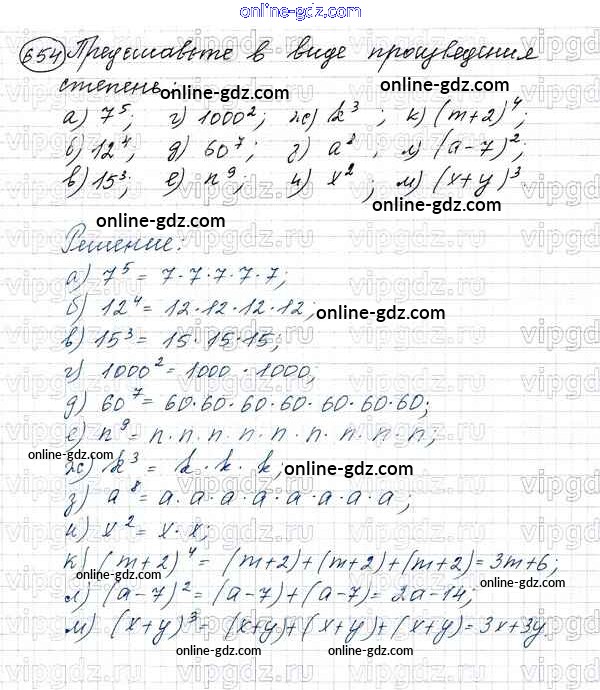 online-gdz.com
654 Представьте в виде произведения
степень:
online-gdz.com
а) 7⁵; г) 1000²; ж) k³; к) (m+2)⁴;
б) 12⁴; д) 60⁷; з) a⁸; л) (a-7)²;
в) 15³; е) n⁹; и) x²; м) (x+y)³.
online-gdz.com
online-gdz.com
Решение:
а) 7⁵ = 7·7·7·7·7;
б) 12⁴ = 12·12·12·12;
online-gdz.com
в) 15³ = 15·15·15;
г) 1000² = 1000·1000;
д) 60⁷ = 60·60·60·60·60·60·60;
е) n⁹ = n·n·n·n·n·n·n·n·n;
ж) k³ = k·k·k;
online-gdz.com
з) a⁸ = a·a·a·a·a·a·a·a;
и) x² = x·x;
к) (m+2)⁴ = (m+2)+(m+2)+(m+2) = 3m+6;
online-gdz.com
online-gdz.com
л) (a-7)² = (a-7)+(a-7) = 2a-14;
online-gdz.com
м) (x+y)³ = (x+y)+(x+y)+(x+y) = 3x+3y.
online-gdz.com
online-gdz.com
vipgdz.ru